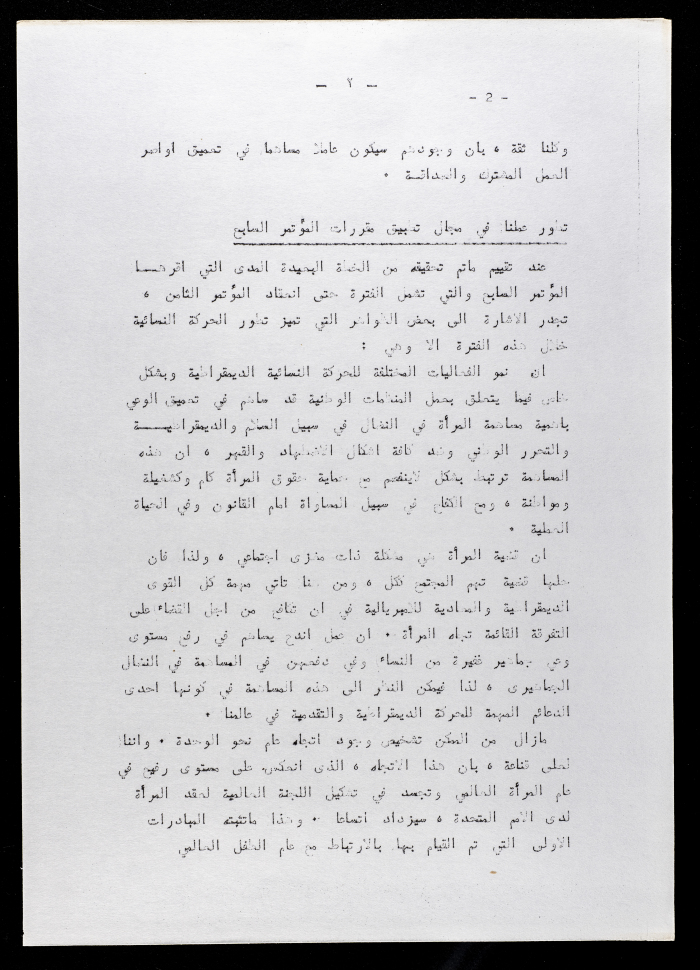 - ٢ -
- 2 -
وكلنا ثقة ، بان وجودهم سيكون عاملا مساهما في تعميق اواصر
العمل المشترك والصداقة .
تطور عملنا في مجال تطبيق مقررات المؤتمر السابع
عند تقييم ماتم تحقيقه من الخطة البعيدة المدى التي اقرهــا
المؤتمر السابع والتي تشمل الفترة حتى انعقاد المؤتمر الثامن ،
تجدر الاشارة الى بعض الظواهر التي تميز تطور الحركة النسائية
خلال هذه الفترة الا وهي :
ان نمو الفعاليات المختلفة للحركة النسائية الديمقراطية وبشكل
خاص فيما يتعلق بعمل المنظمات الوطنية قد ساهم في تعميق الوعي
باهمية مساهمة المرأة في النضال في سبيل السلام والديمقراطيـــة
والتحرر الوطني وضد كافة اشكال الاضطهاد والقهر ، ان هذه
المساهمة ترتبط بشكل لاينفصم مع حماية حقوق المرأة كام وكشغيلة
ومواطنة ، ومع الكفاح في سبيل المساواة امام القانون وفي الحياة
العملية .
ان قضية المرأة هي مشكلة ذات مغزى اجتماعي ، ولذا فان
حلها قضية تهم المجتمع ككل ، ومن هنا تاتي مهمة كل القوى
الديمقراطية والمعادية للامبريالية في ان تناضل من اجل القضاء على
التفرقة القائمة تجاه المرأة . ان عمل اندع يساهم في رفع مستوى
وعي جماهير غفيرة من النساء وفي دفعهن في المساهمة في النضال
الجماهيرى ، لذا فيمكن النظر الى هذه المساهمة في كونها احدى
الدعائم المهمة للحركة الديمقراطية والتقدمية في عالمنا .
مازال من الممكن تشخيص وجود اتجاه عام نحو الوحدة . واننا
لعلى قناعة ، بان هذا الاتجاه ، الذى انعكس على مستوى رفيع في
عام المرأة العالمي وتجسد في تشكيل اللجنة العالمية لعقد المرأة
لدى الامم المتحدة ، سيزداد اتساعا . وهذا ماتثبته المبادرات
الاولى التي تم القيام بها بالارتباط مع عام الطفل العالمي